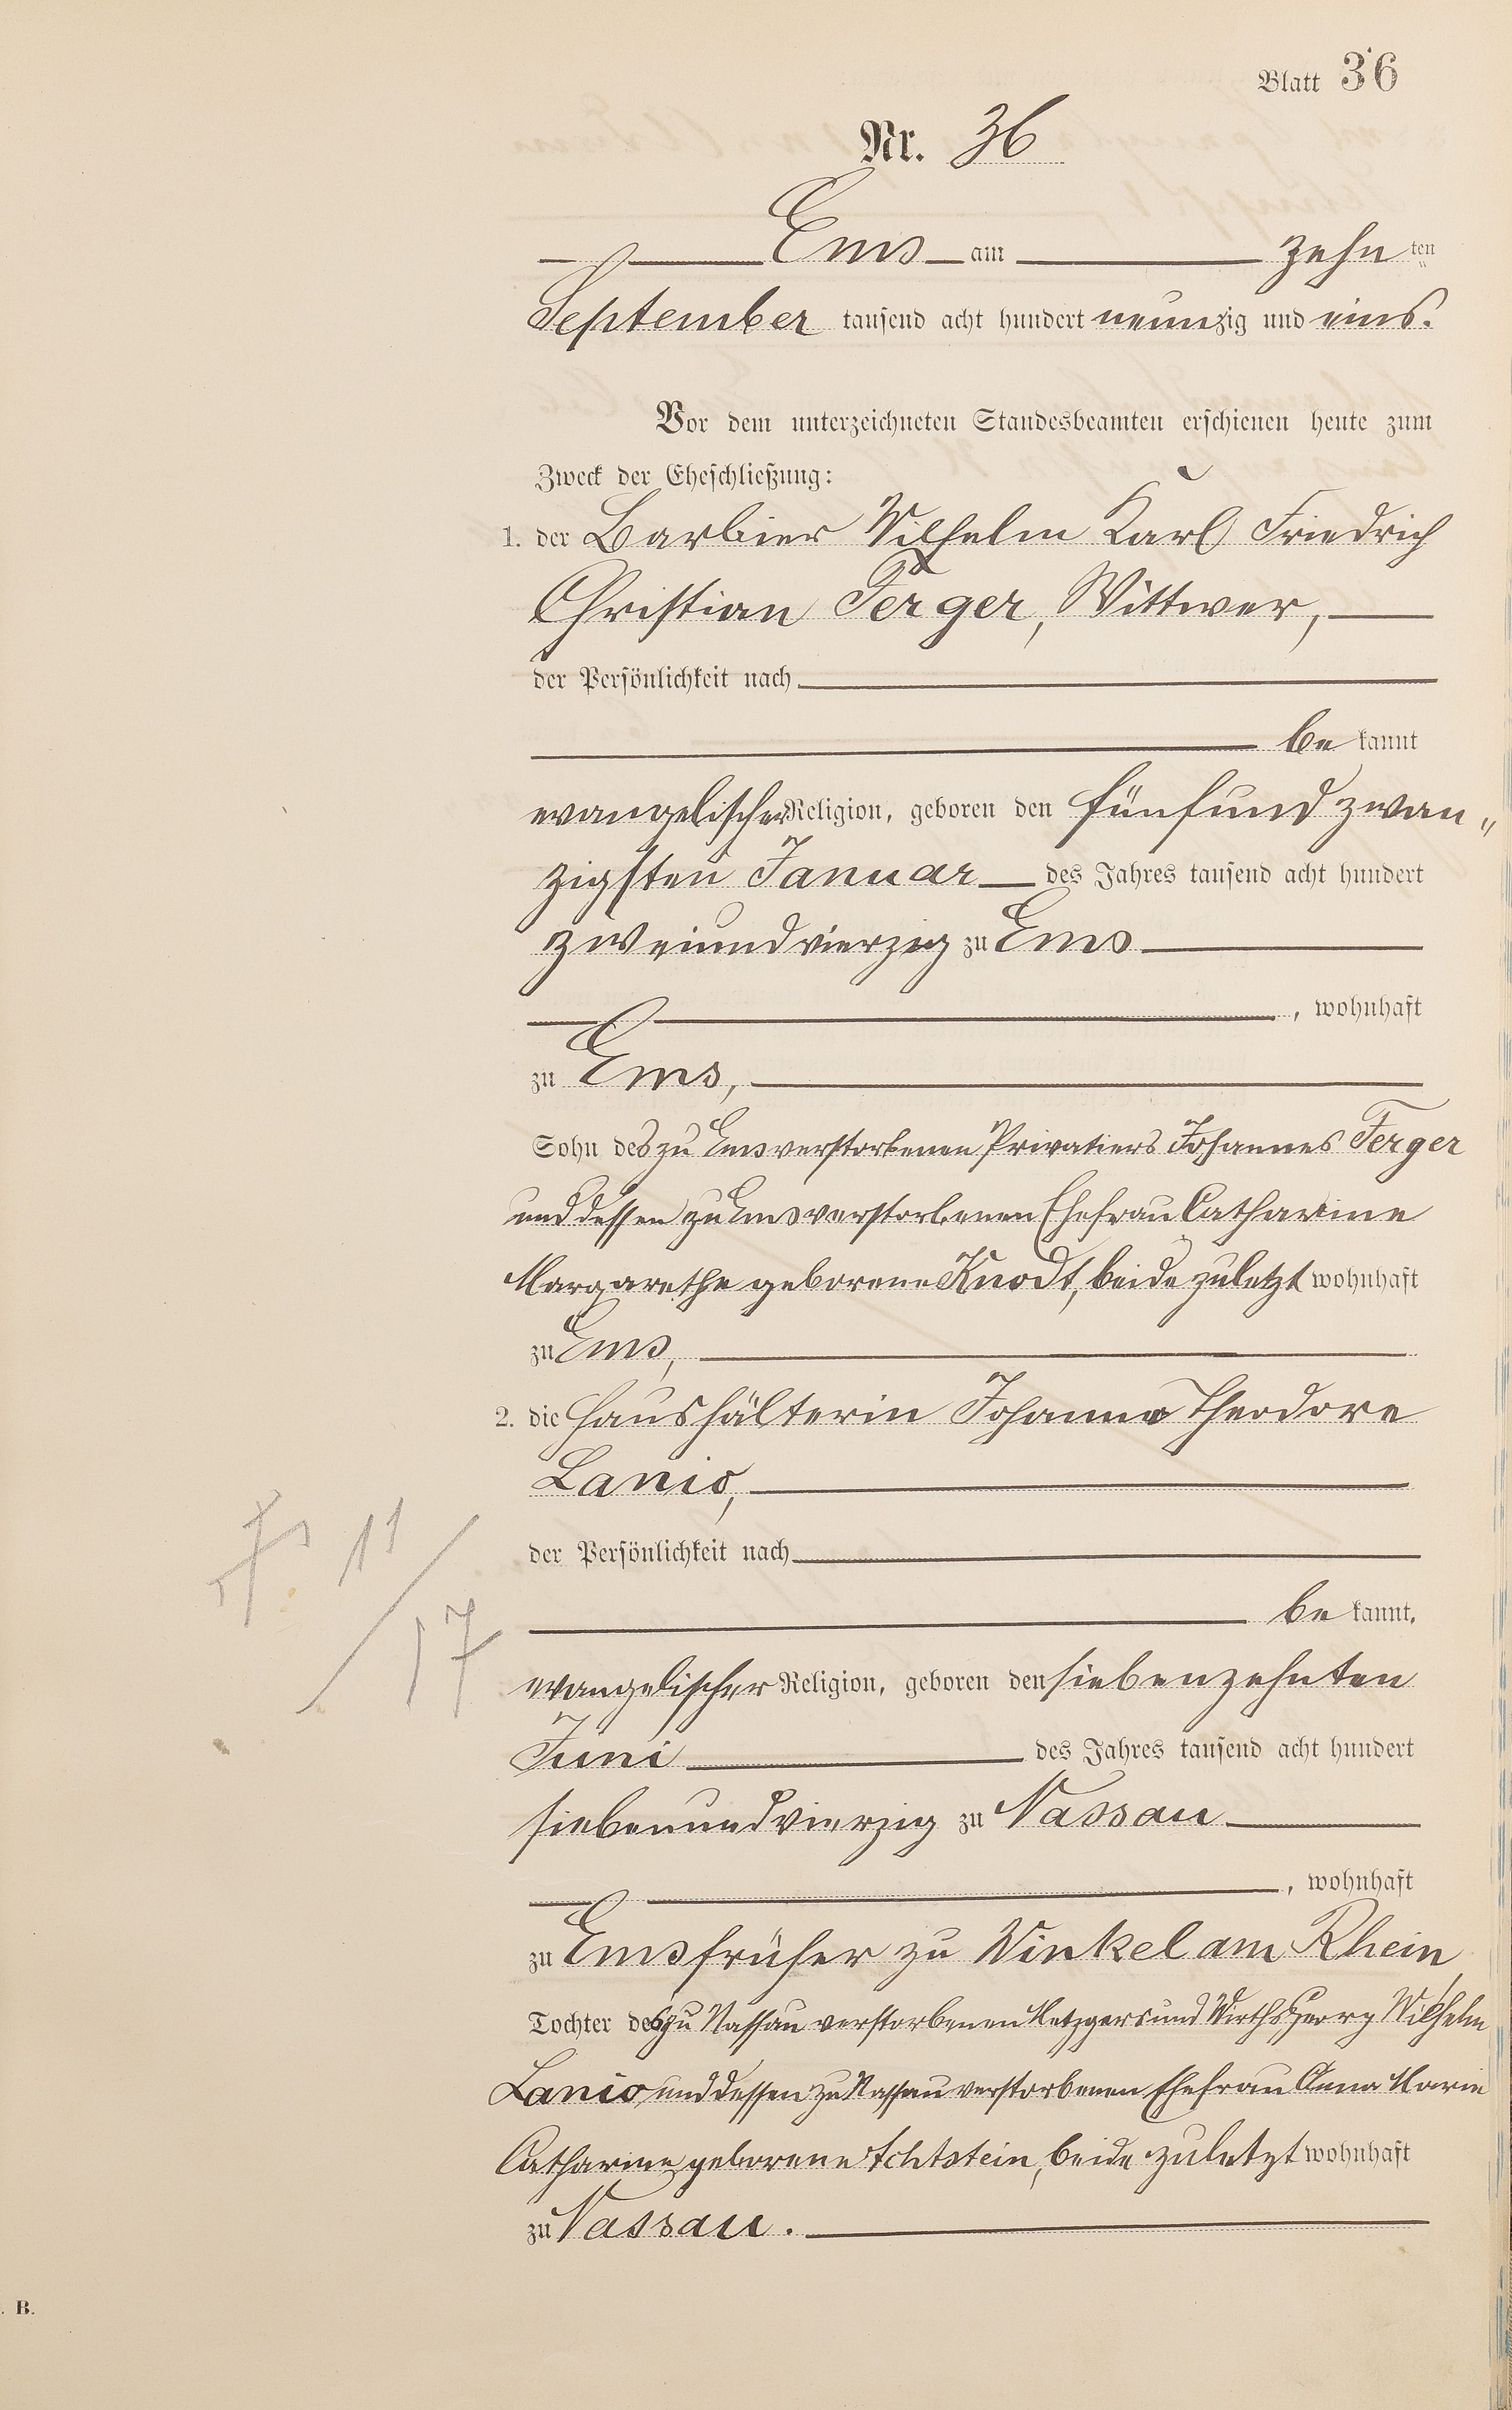 Blatt 36
Nr. 36
Ems am zehn ten
September tausend acht hundert neunzig und eins.
Vor dem unterzeichneten Standesbeamten erschienen heute zum
Zweck der Eheschließung:
1. der Barbier Wilhelm Karl Friedrich
Christian Ferger, Wittwer,
der Persönlichkeit nach
be kannt
evangelischer Religion, geboren den fünfund zwan„
zigsten Januar des Jahres tausend acht hundert
zweiundvierzig zu Ems
, wohnhaft
zu Ems,
Sohn des zu Ems verstorbenen Privatiers Johannes Ferger
und dessen zu Ems verstorbenen Ehefrau Catharine
Margarethe geborene Knodt, beide zuletzt wohnhaft
zu Ems,
2. die Haushälterin Johanna Theodore
Lanio,
der Persönlichkeit nach
be kannt,
evangelischer Religion, geboren den siebenzehnten
Juni des Jahres tausend acht hundert
siebenundvierzig zu Nassau
, wohnhaft
zu Ems früher zu Winkel am Rhein
Tochter des zu Nassau verstorbenen Metzgers und Wirths Georg Wilhelm
Lanio und dessen zu Nassau verstorbenen Ehefrau Anna Marie
Catharine geborene Achtstein, beide zuletzt wohnhaft
zu Nassau.
11
17
. B.